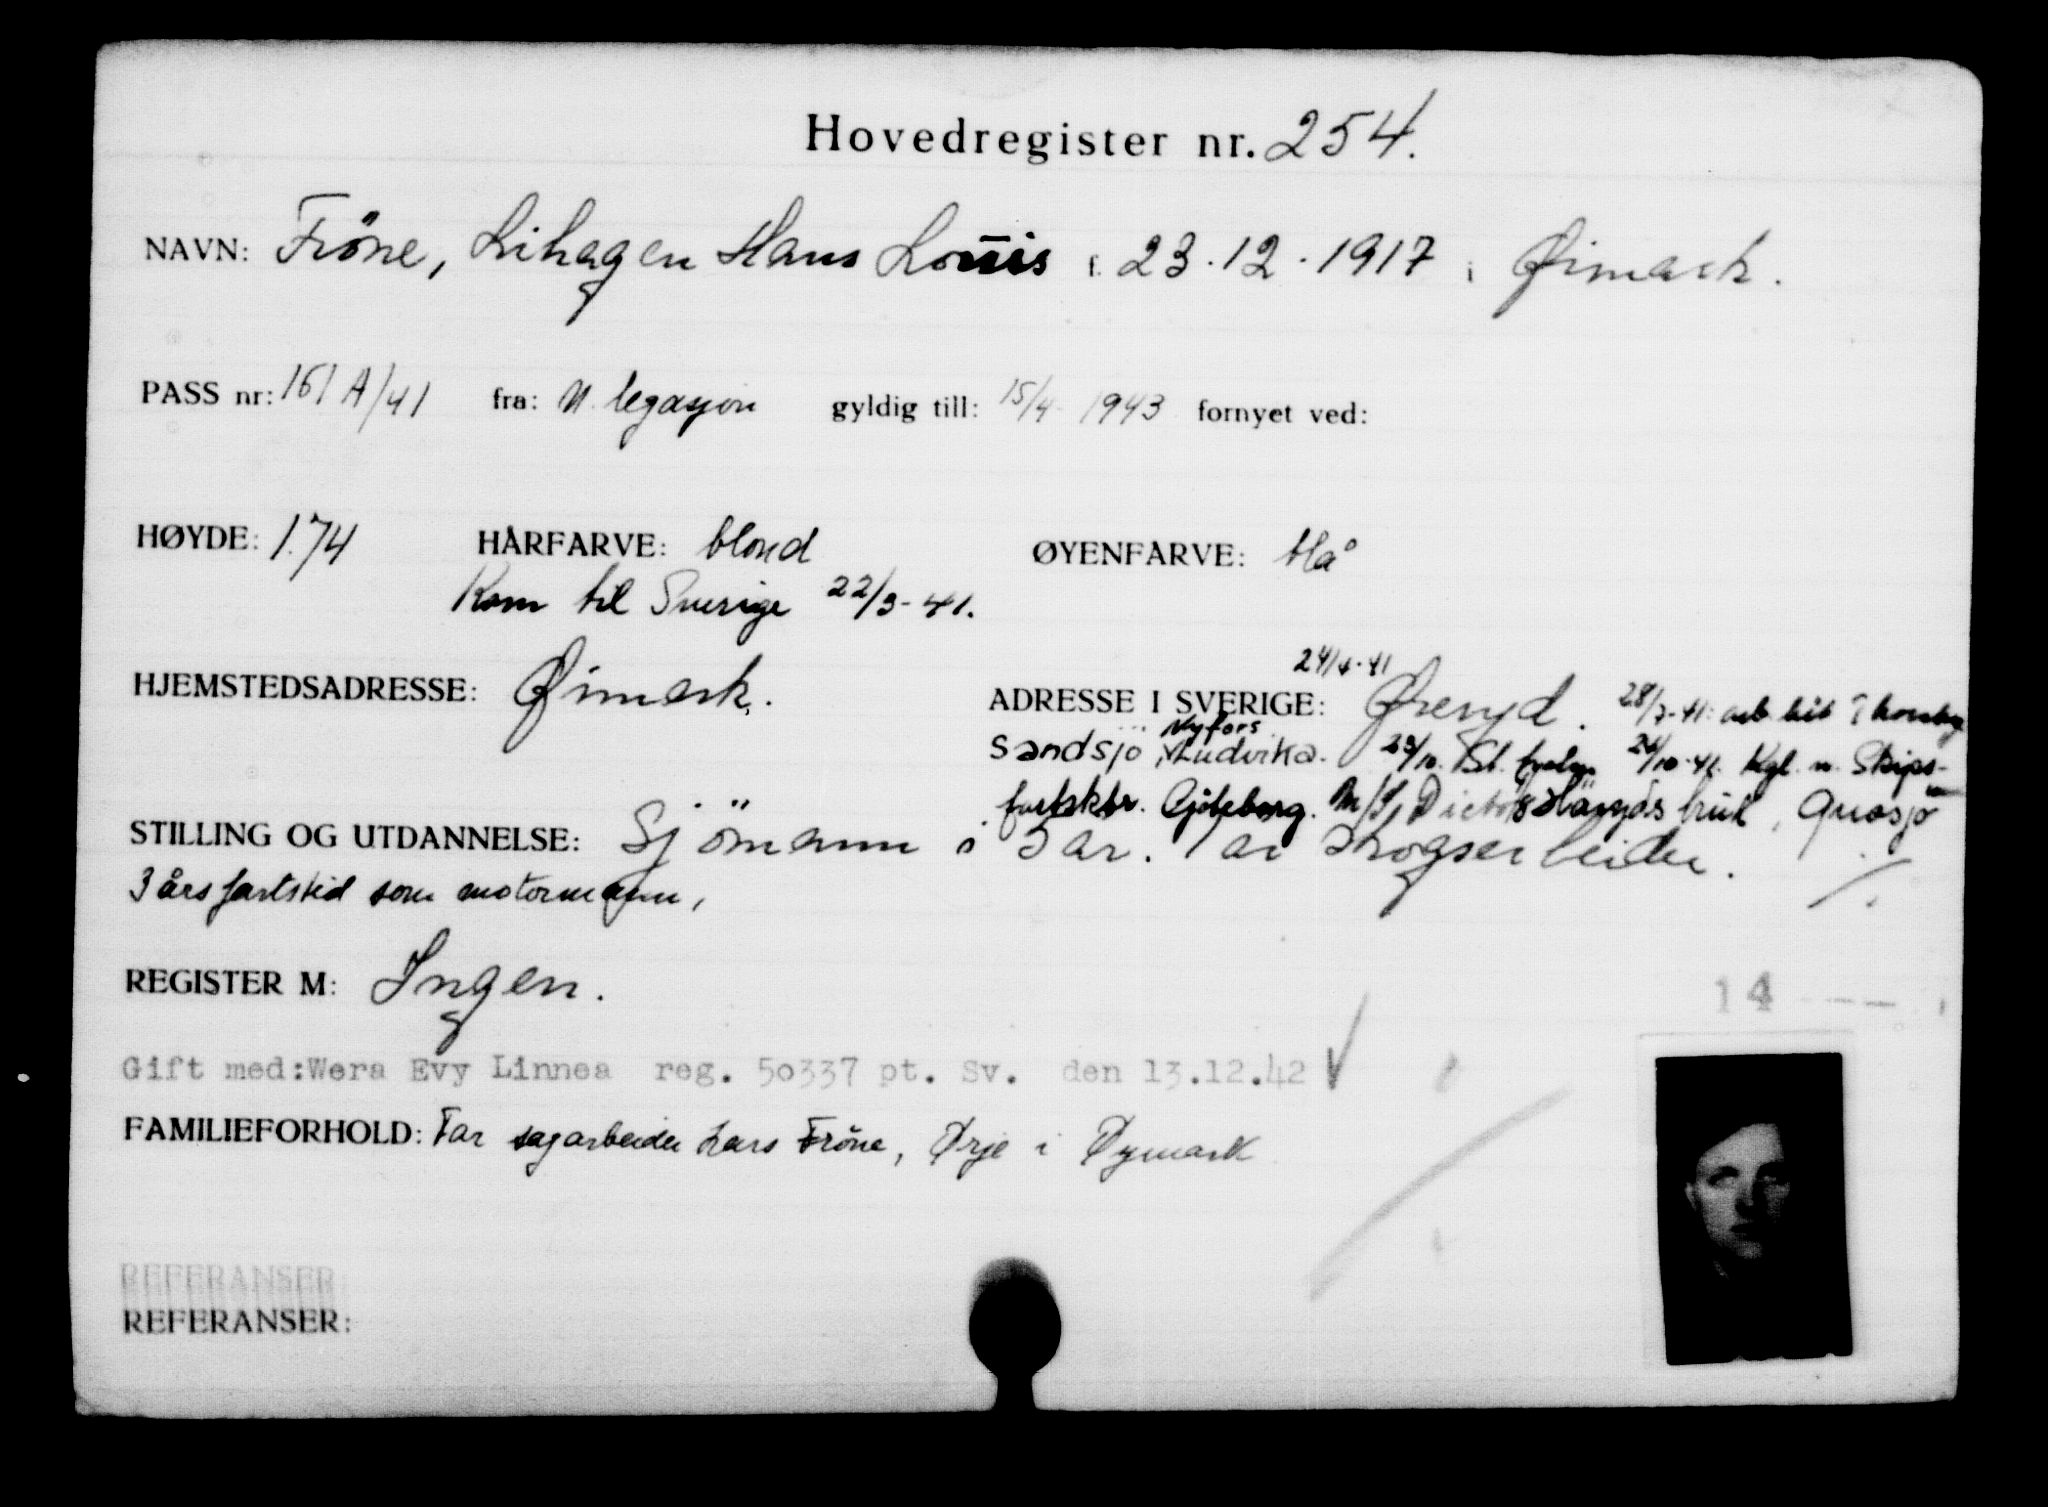 Hovedregister nr. 254.
NAVN: Fröne, Lihagen Hans Louis f. 23.12.1917 i Øimark.
PASS nr: 161 A/41 fra: N. legasjon gyldig till: 15/4 1943 fornyet ved:
HØYDE: 1.74 HÅRFARVE: blond ØYENFARVE: blå
Kom til Sverige 22/3-41.
24/4-41
HJEMSTEDSADRESSE: Øimark. ADRESSE I SVERIGE: Øreryd. 28/7-41: arb.
Nyfors
Sandsjö, Ludvika. 23/10. 24/10-41. Kgl. n. Skips-
fartsktr. Gjöteborg. M/S bruk,
STILLING OG UTDANNELSE: Sjömann i 5 år. 1 år skogsarbeider. ./.
3 års fartstid som motormann,
REGISTER M: Ingen.
14 ---
Gift med:Wera Evy Linnea reg. 50337 pt. Sv. den 13.12.42
FAMILIEFORHOLD: Far sagarbeider Lars Fröne, Ørje i Øymark
REFERANSER
REFERANSER: